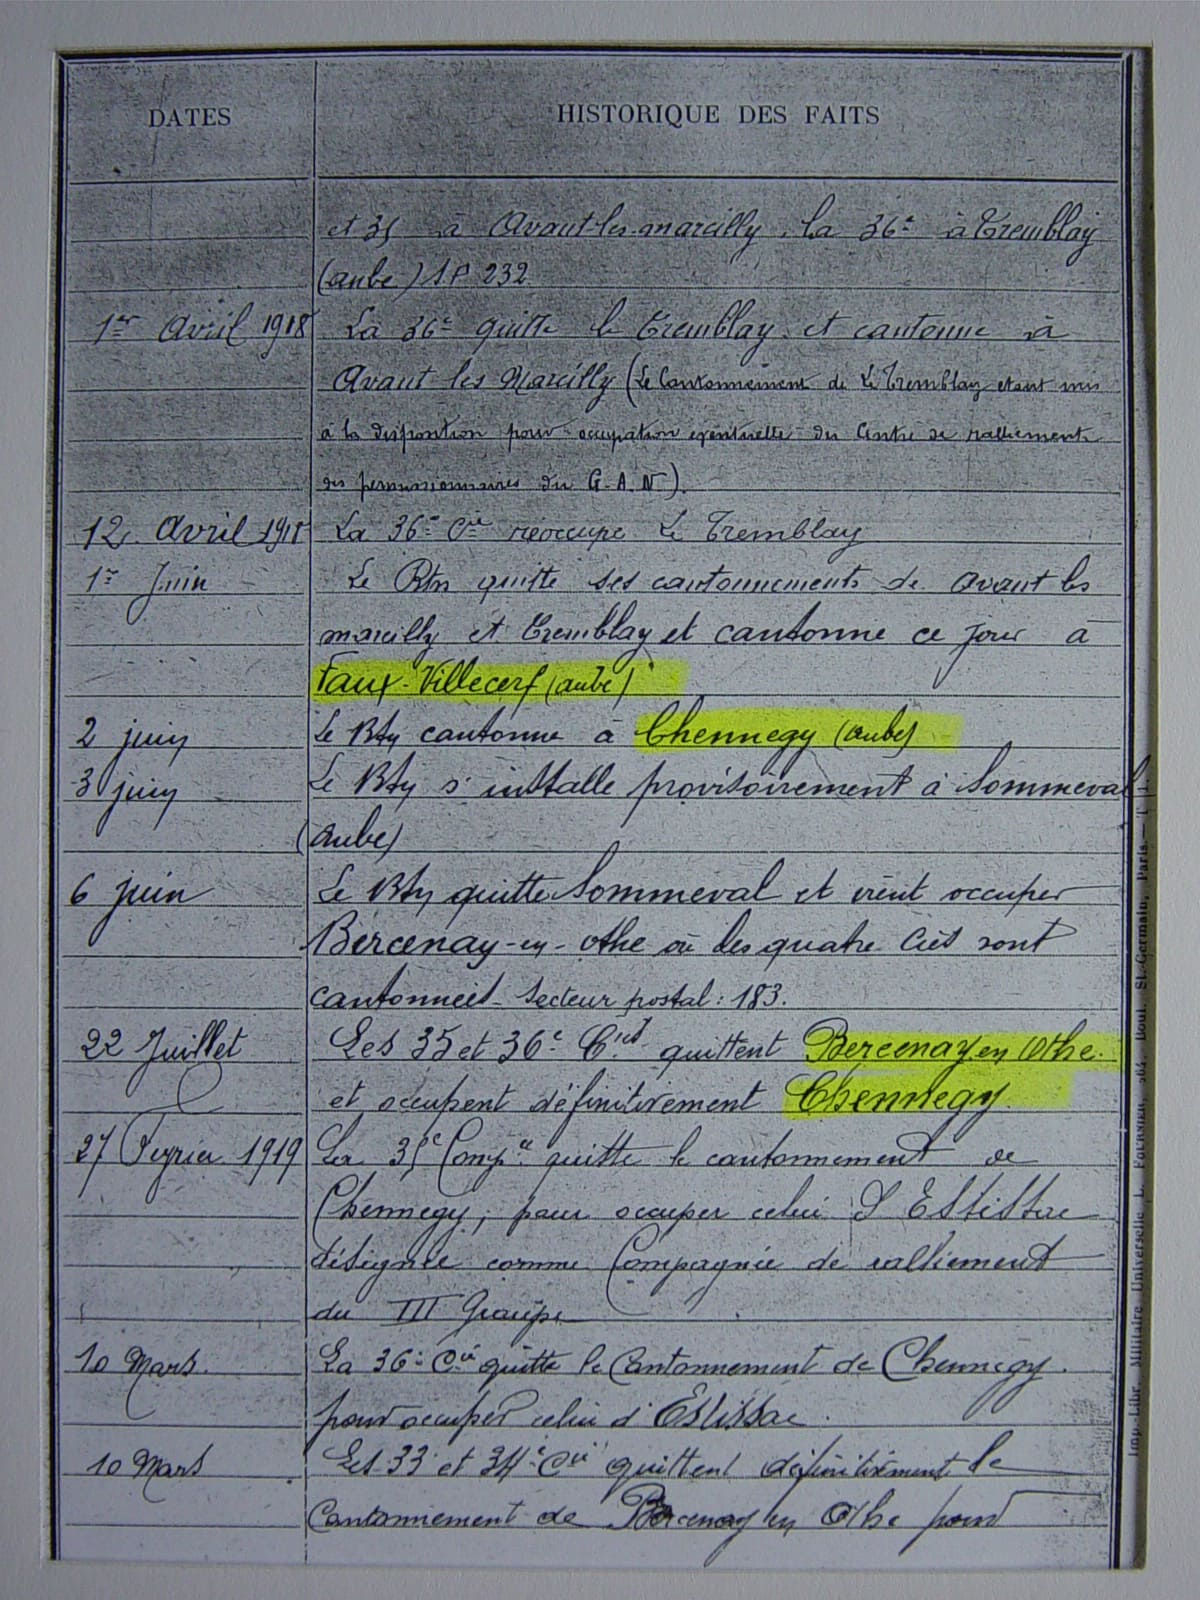 DATES
HISTORIQUE DES FAITS
et 35 à Avant-les-marcilly, la 36e à Tremblay
(aube) S.P 232
1er Avril 1918 La 36e quitte le Tremblay et cantonne à
Avant les Marcilly (Le Cantonnement de Le Tremblay etant mis
à la disposition pour occupation eventuelle du Centre de ralliement
des permissionnaires du G.A.N).
12 Avril 1918 La 36e Cie réoccupe Le Tremblay
1er Juin Le Btn quitte ses cantonnements de Avant les
marcilly et Tremblay et cantonne ce jour à
Faux-Villecerf (aube)
2 juin Le Btn cantonne à Chennegy (aube)
3 juin Le Btn s'installe provisoirement à Sommeval
(aube)
6 juin Le Btn quitte Sommeval et vient occuper
Bercenay-en-othe où les quatre Cies sont
cantonnées - Secteur postal : 183.
22 Juillet Les 35 et 36e Cies quittent Bercenay en Othe.
et occupent définitivement Chennegy.
27 Fevrier 1919 La 35e Compie quitte le cantonnement de
Chennegy, pour occuper celui d'Estissac
désignée comme Compagnie de ralliement
du III Groupe
10 Mars. La 36e Cie quitte le Cantonnement de Chennegy.
pour occuper celui d'Estissac.
10 Mars Les 33 et 34e Cie quittent définitivement le
Cantonnement de Bercenay en Othe pour
Imp.-Libr. Militaire Universelle L. FOURNIER, 264, Boul. St-Germain, Paris.—